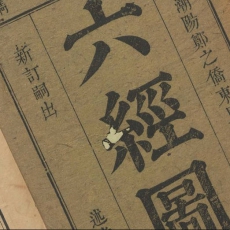 潮陽鄭之僑東里
六經圖
新訂嗣出